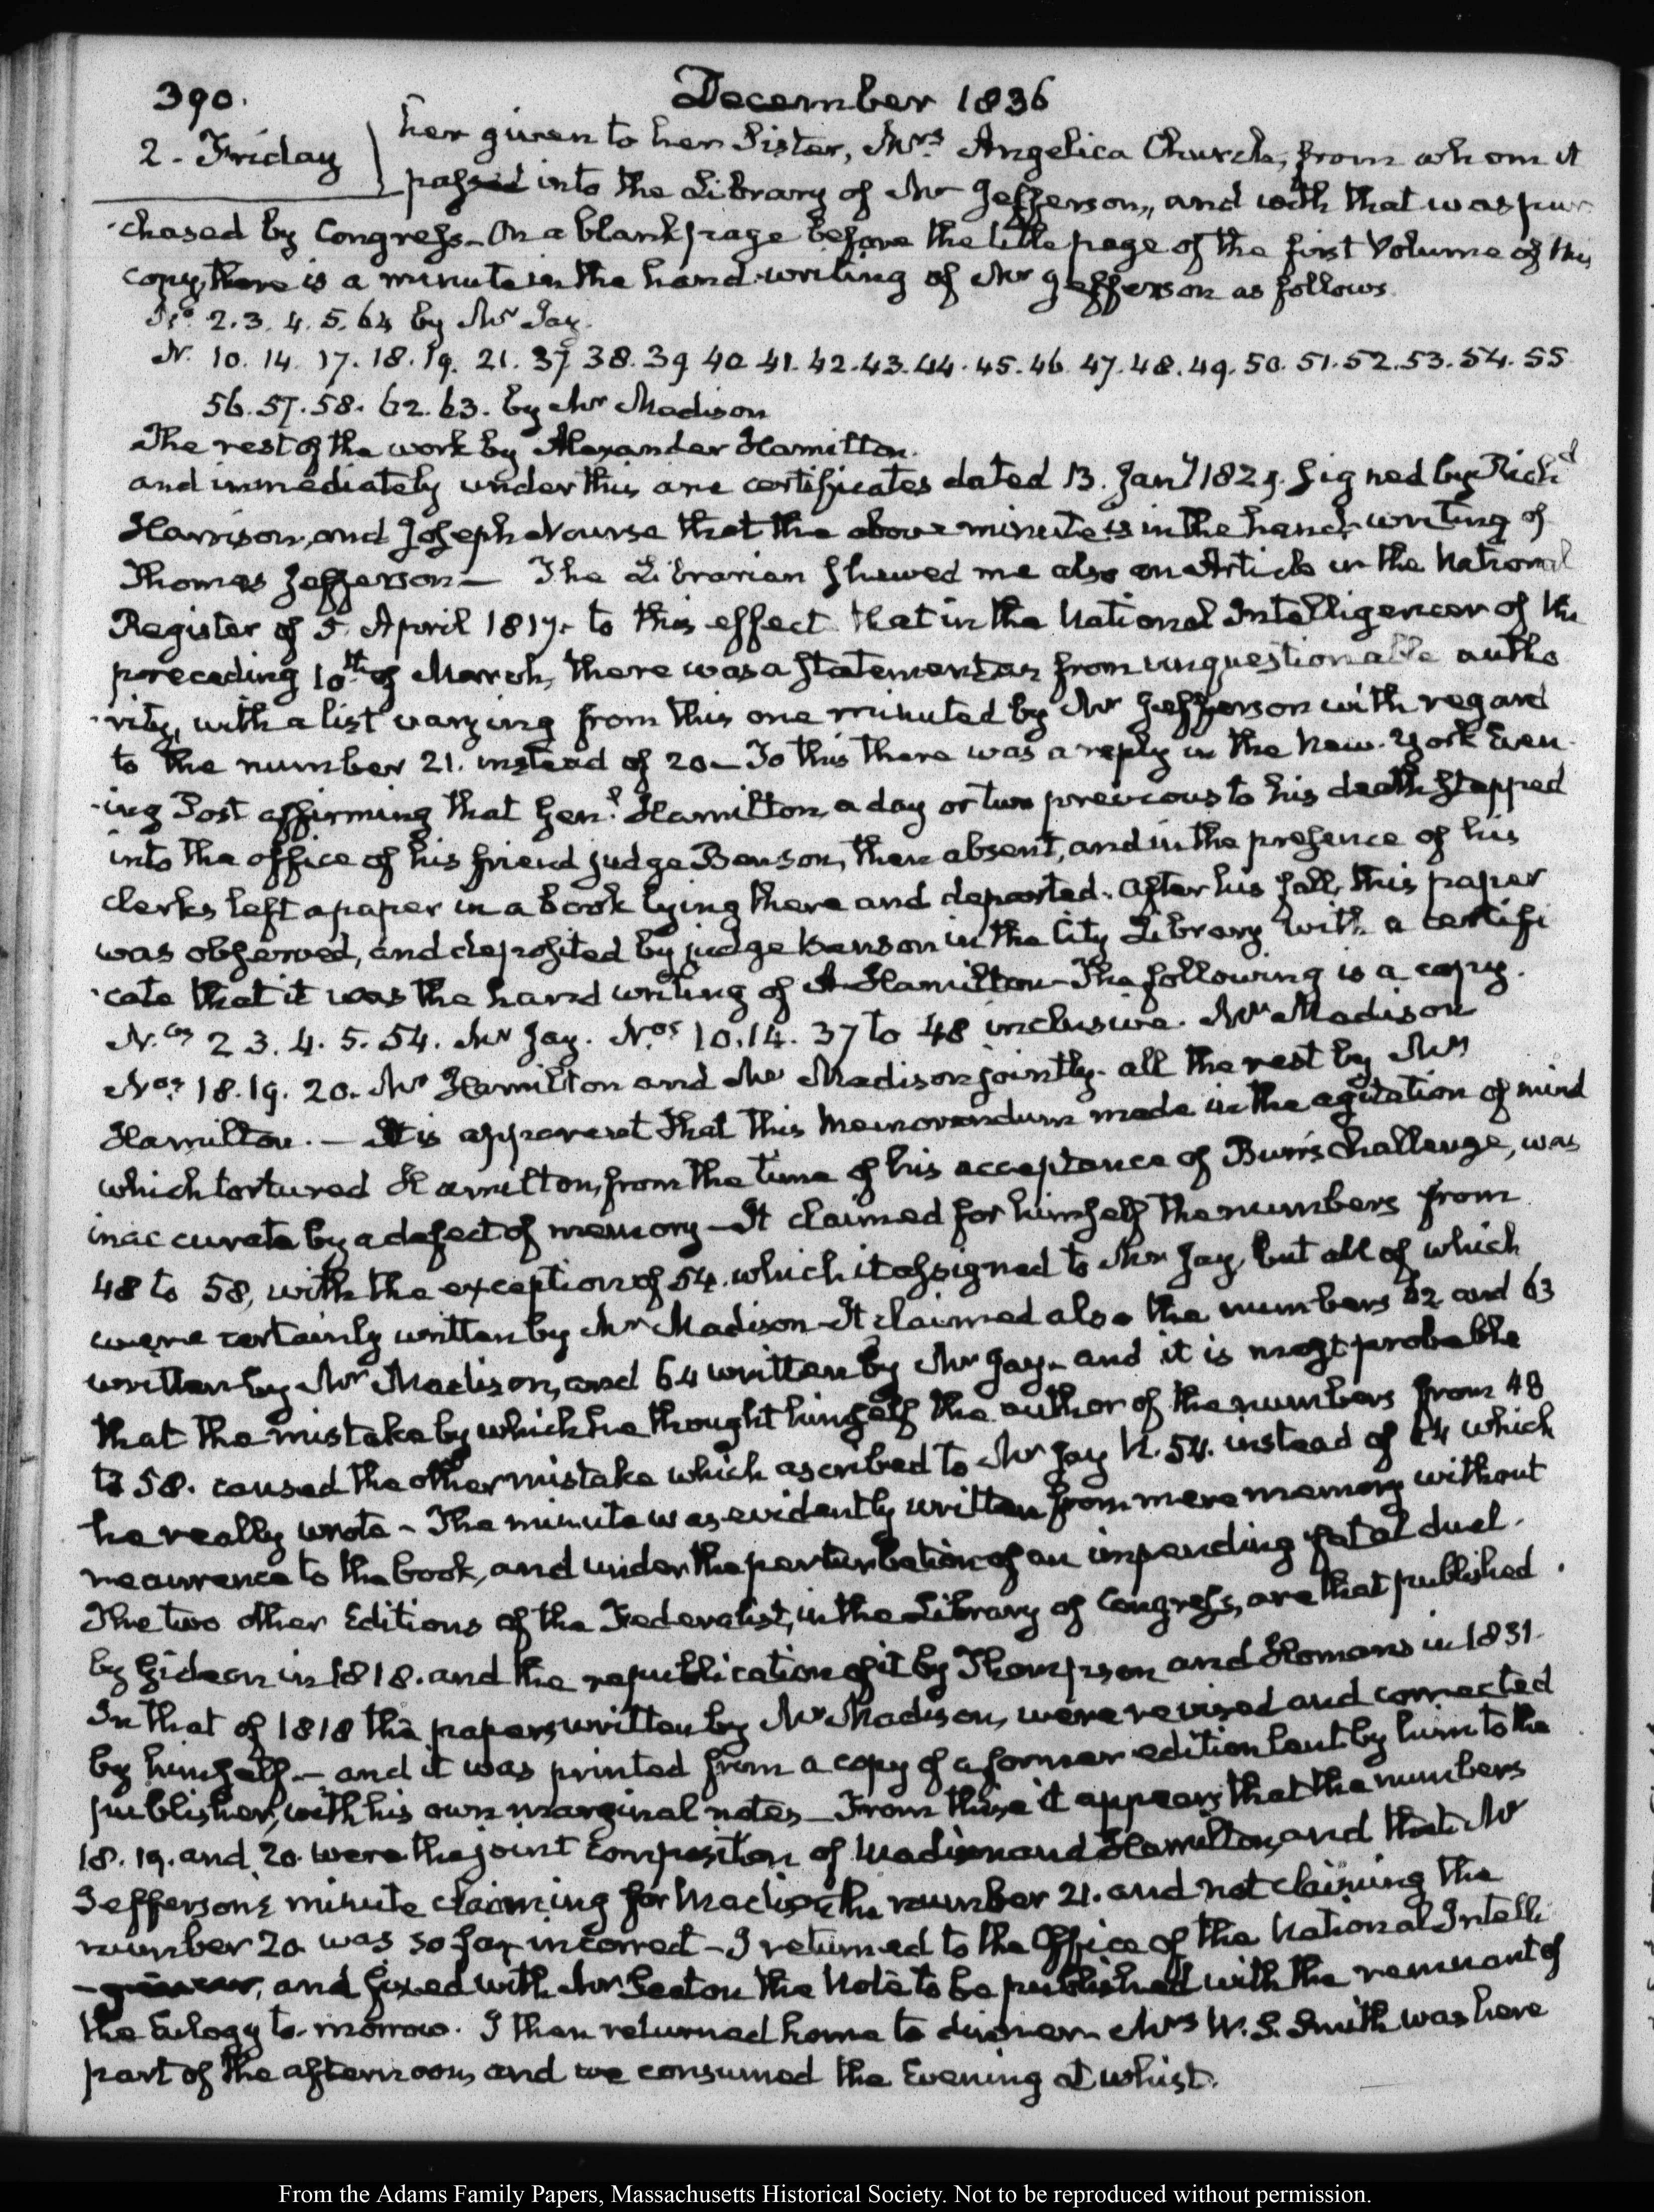 390.
December 1836
2. Friday
her given to her Sister, Mrs. Angelica Church, from whom it
passed into the Library of Mr Jefferson, and with that was pur
-chased by Congress. On a blank page before the title page of the first Volume of this
copy, there is a minute in the hand-writing of Mr Jefferson as follows.
No. 2. 3. 4. 5. 64 by Mr Jay.
N. 10. 14. 17. 18. 19. 21. 37. 38. 39 40 41. 42. 43. 44. 45. 46 47. 48. 49. 50. 51. 52. 53. 54. 55
56. 57. 58. 62. 63. by Mr Madison
The rest of the work by Alexander Hamilton.
and immediately under this are certificates dated 13. Jany 1829. signed by Richd
Harrison, and Joseph Nourse that the above minute is in the hand-writing of
Thomas Jefferson — The Librarian shewed me also an Article in the National
Register of 5. April 1817. to this effect that in the National Intelligencer of the
preceding 10th of March, there was a statement as from unquestionable autho
-rity, with a list varying from this one minuted by Mr Jefferson with regard
to the number 21. instead of 20 — To this there was a reply in the New-York Even
-ing Post affirming that Genl. Hamilton, a day or two previous to his death stepped
into the office of his friend judge Benson, then absent, and in the presence of his
clerks left a paper in a book lying there and departed. After his fall, this paper
was observed, and deposited by judge Benson in the City Library with a certifi
-cate that it was the hand writing of A Hamilton — The following is a copy.
N.os 2 3. 4. 5. 54. Mr Jay. N.os 10. 14. 37 to 48 inclusive. Mr Madison
Nos. 18. 19. 20. Mr Hamilton and Mr Madison jointly. all the rest by Mr
Hamilton. — It is apparent that this Memorandum made in the agitation of mind
which tortured Hamilton, from the time of his acceptance of Burr's challenge, was
inaccurate by a defect of memory — It claimed for himself the numbers from
48 to 58, with the exception of 54. which it assigned to Mr Jay, but all of which
were certainly written by Mr Madison — It claimed also the numbers 62 and 63
written by Mr Madison, and 64 written by Mr Jay — and it is most probable
that the mistake by which he thought himself the author of the numbers from 48
to 58. caused the other mistake which ascribed to Mr Jay N. 54. instead of 64 which
he really wrote — The minute was evidently written from mere memory without
recurrence to the book, and under the perturbation of an impending fatal duel.
The two other Editions of the Federalist, in the Library of Congress, are that published
by Gideon in 1818. and the republication of it by Thompson and Homans in 1831.
In that of 1818 the papers written by Mr Madison, were revised and corrected
by himself — and it was printed from a copy of a former edition lent by him to the
publisher, with his own marginal notes — From these it appears that the numbers
18. 19. and 20. were the joint composition of Madison and Hamilton, and that Mr
Jefferson's minute claiming for Madison the number 21. and not claiming the
number 20 was so far incorrect — I returned to the Office of the National Intelli
-gencer, and fixed with Mr Seaton the Note to be published with the remnant of
the Eulogy to-morrow. I then returned home to dinner. Mrs W. S. Smith was here
part of the afternoon, and we consumed the Evening at whist.
From the Adams Family Papers, Massachusetts Historical Society. Not to be reproduced without permission.